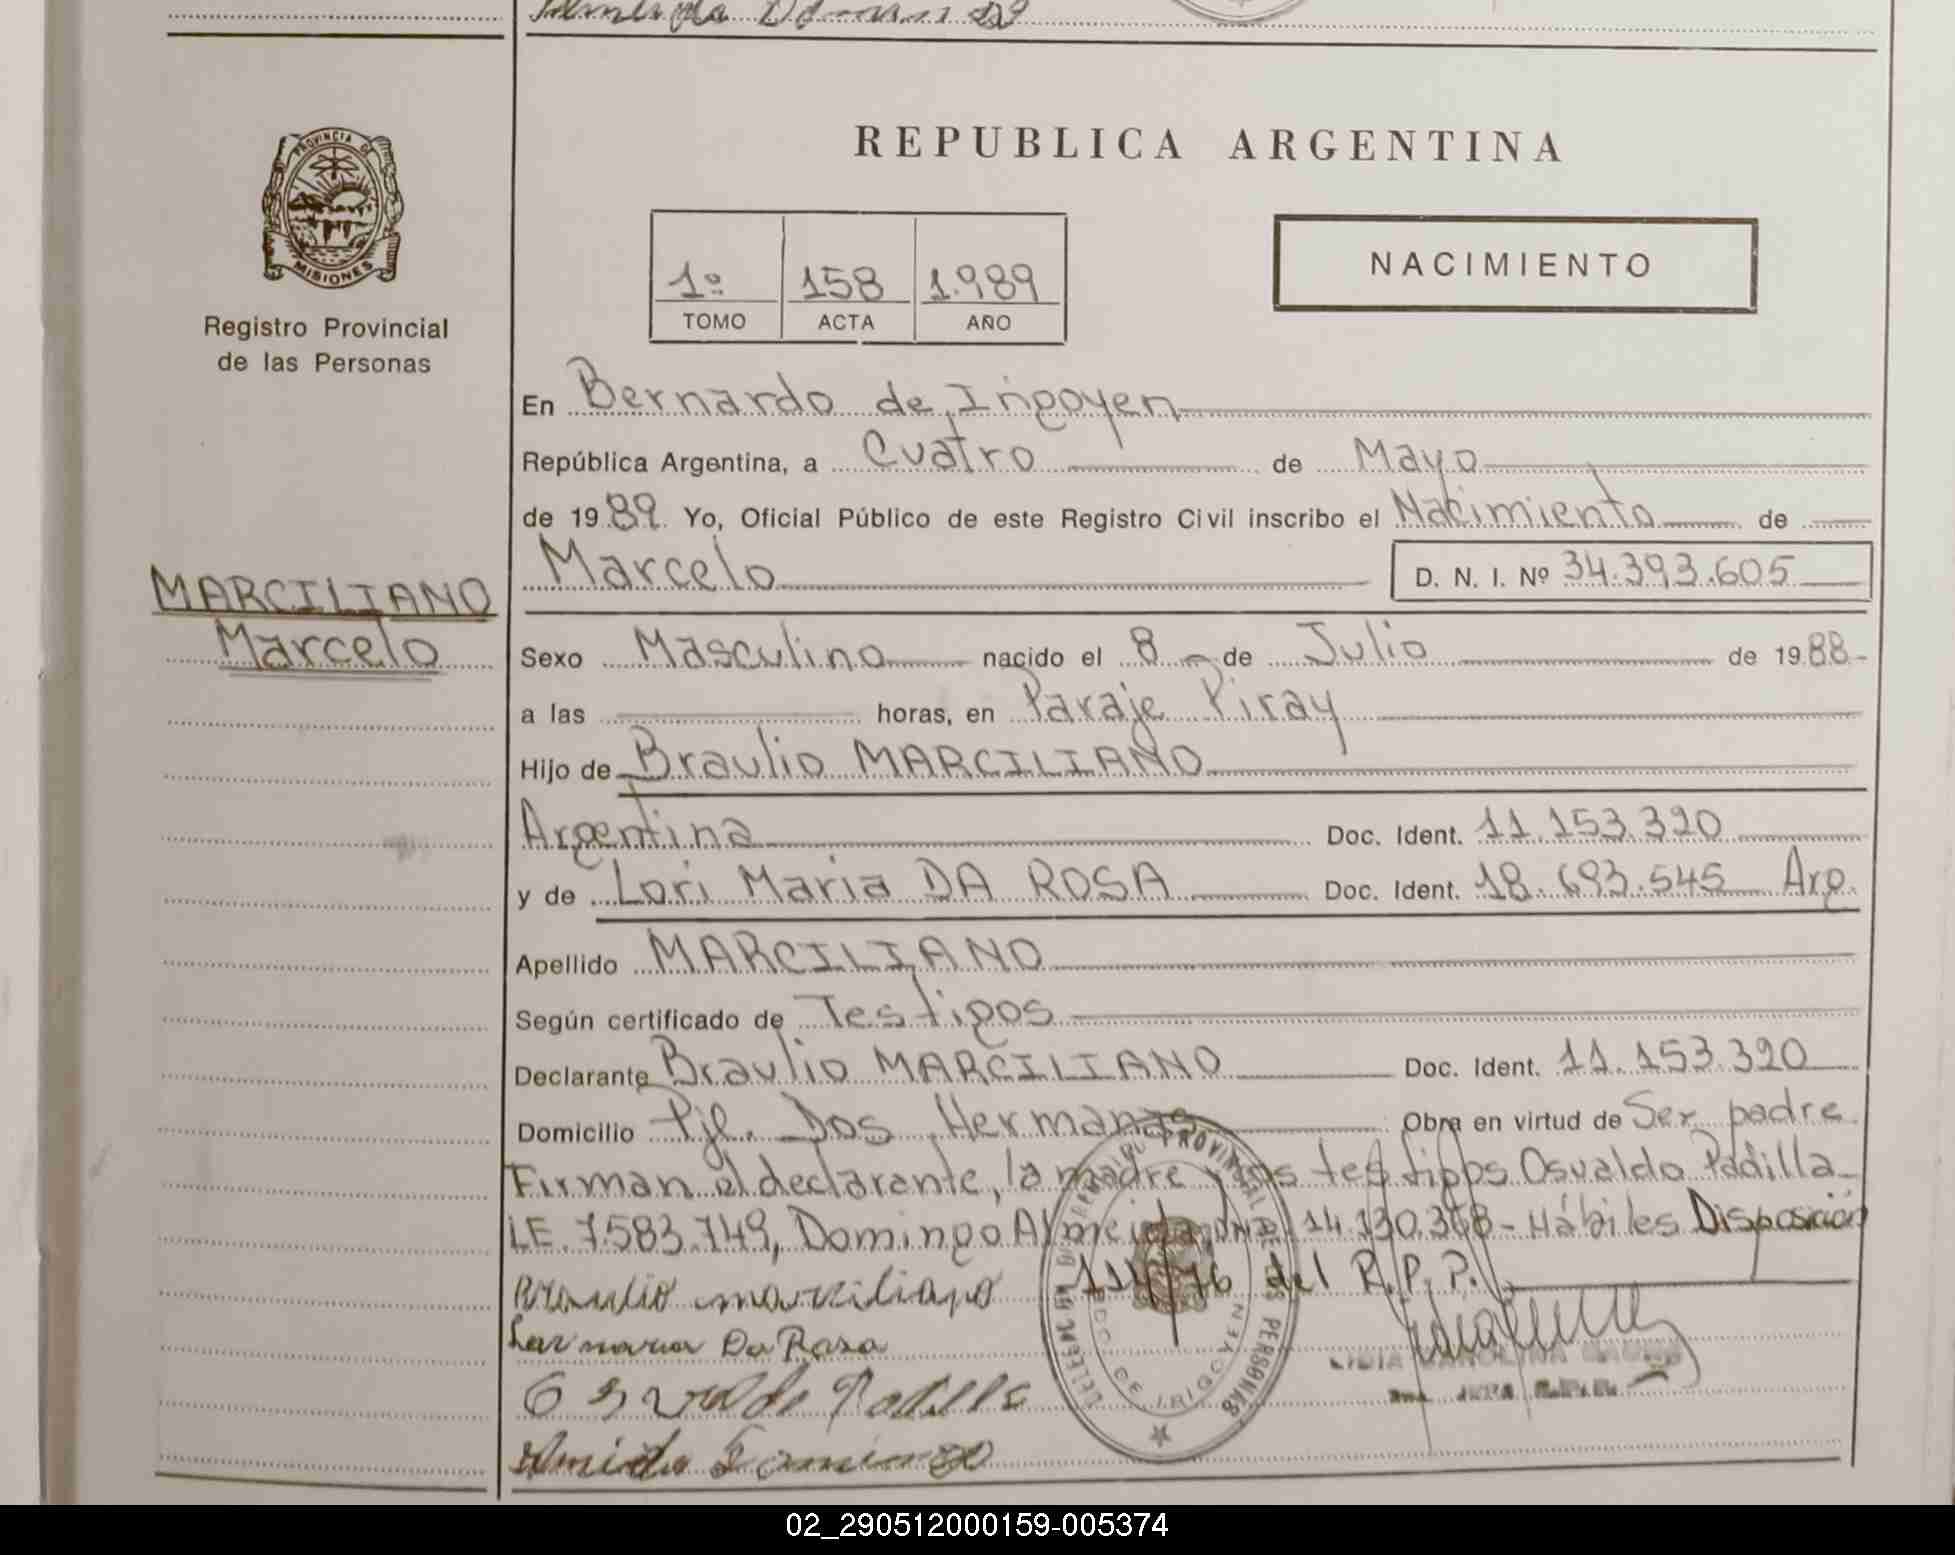 REPUBLICA ARGENTINA
PROVINCIA DE
MISIONES
Registro Provincial
de las Personas
1º 158 1.989
TOMO ACTA AÑO
NACIMIENTO
En Bernardo de Irigoyen
República Argentina, a Cuatro de Mayo
de 1989. Yo, Oficial Público de este Registro Civil inscribo el Nacimiento de
Marcelo D. N. I. Nº 34.393.605
MARCILIANO
Marcelo
Sexo Masculino nacido el 8 de Julio de 1988-
a las horas, en Paraje Piray
Hijo de Braulio MARCILIANO
Argentina Doc. Ident. 11.153.320
y de Lori Maria DA ROSA Doc. Ident. 18.693.545 Arg.
Apellido MARCILIANO
Según certificado de Testigos
Declarante Braulio MARCILIANO Doc. Ident. 11.153.320
Domicilio Pje. Dos Hermanas Obra en virtud de Ser padre
Firman el declarante, la madre y los testigos Osvaldo Padilla
LE. 7.583.749, Domingo Almeida, DNI. 14.130.368 - Hábiles Disposición
114/76 del R.P.P.
Braulio marciliano
Lor maria Da Rosa
Osvaldo Padilla
DELEGACION DEL REGISTRO PROVINCIAL DE LAS PERSONAS
BDO. DE IRIGOYEN
LIDIA CAROLINA
02_290512000159-005374